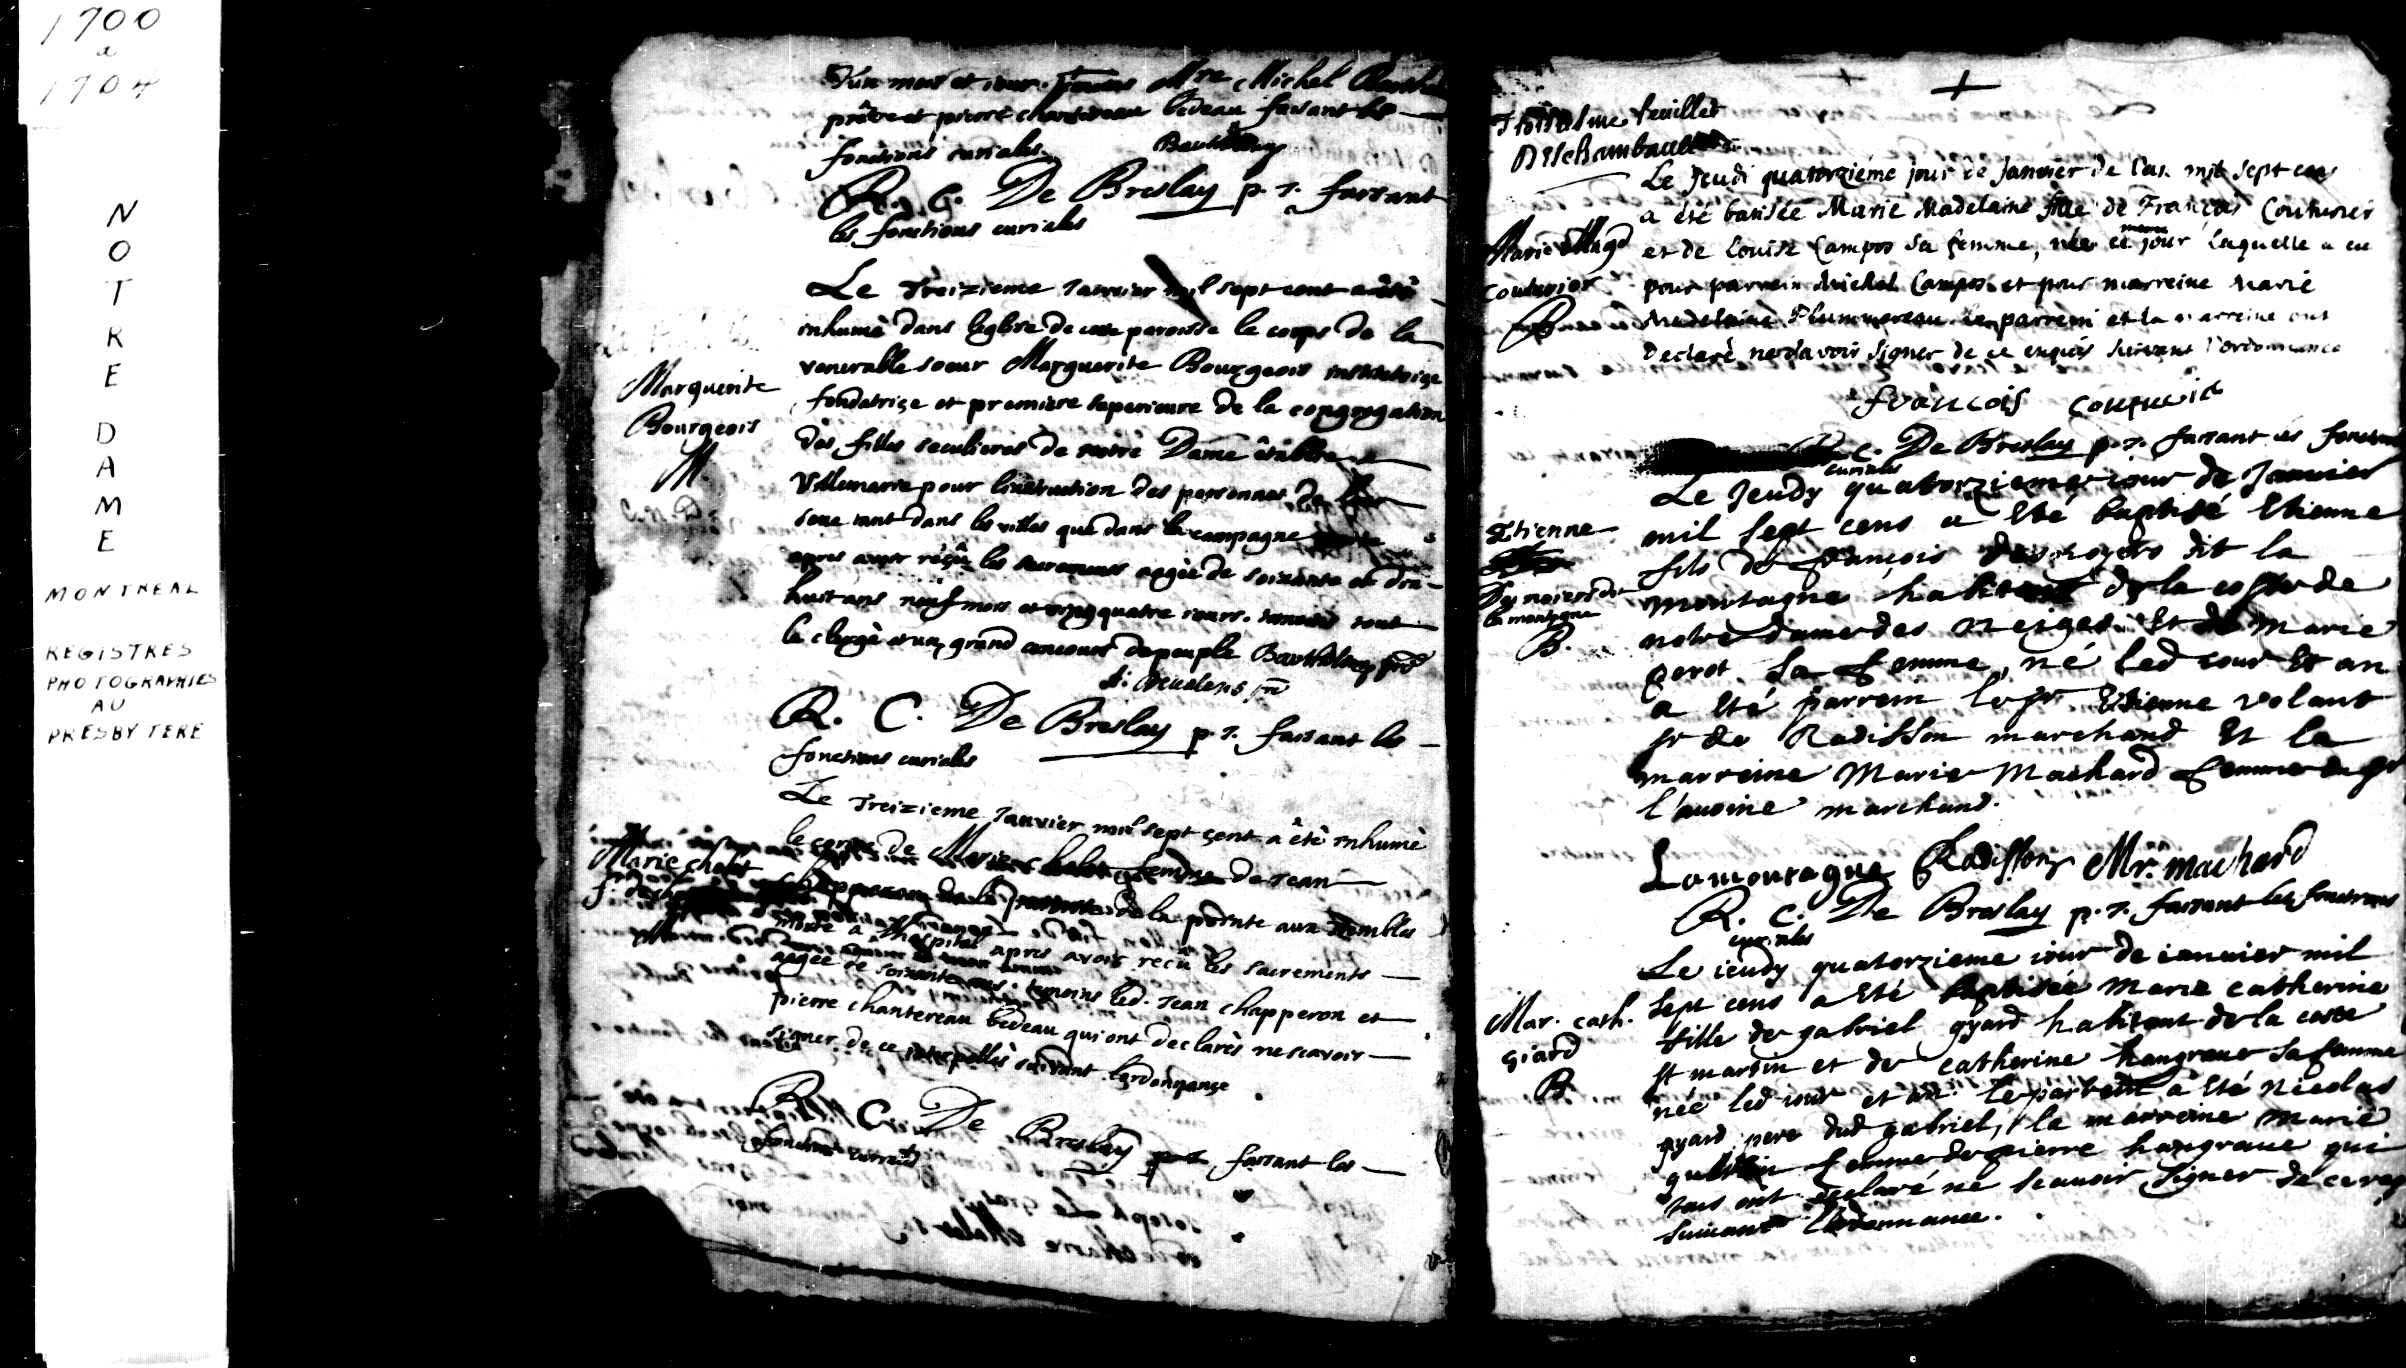 1700
a
1704
NOTRE DAME
MONTREAL
REGISTRES
PHOTOGRAPHIES
AU
PRESBYTERE
mois et jour. Mre Michel
prêtre et pierre chantereau bedeau faisant les
fonctions curiales
R. C. De Breslay p. s. faisant
les fonctions curiales
Le Treizieme Janvier mil sept cent a été
inhumé dans leglise de cette paroisse le corps de la
venerable soeur Marguerite Bourgeois institutrice
Marguerite
Bourgeois
fondatrice et premiere superieure de la congregation
des filles seculieres de notre Dame établie a
Villemarie pour linstruction des personnes de leur
sexe tant dans les villes que dans la campagne
apres avoir réçû les sacremens aagée de soixante et dix-
huit ans neuf mois et vingt quatre jours. temoins tout
le clergé et un grand concours de peuple Barthelemy prê
R. C. De Breslay p. s. faisant les
fonctions curiales
Le Treizieme Janvier mil sept cent a été inhumé
le corps de Marie chalut femme de Jean
Marie chalut
de la pointe aux Trembles
morte a l'hospital apres avoir reçû les sacrements
aagée de soixante ans. temoins led. Jean chapperon et
pierre chantereau bedeau qui ont declarés ne scavoir
signer de ce interpellés suivant l'ordonnance
R. C. De Breslay faisant les
fonctions curiales
Troisiesme feuillet
Deschambault
Le Jeudi quatorziéme jour de Janvier de l'an mil sept cens
a été batisée Marie Madelaine fille de François Couturier
Marie Magd
et de Louise Campos sa femme, née ce meme jour laquelle a eu
couturier
pour parrein Michel Campos et pour marreine Marie
B
Madelaine Plumereau. Le parrein et la marreine ont
declaré ne sçavoir signer de ce enquis suivant l'ordonnance
francois couturie
R. C. De Breslay p. s. faisant les fonctions
curiales
Le Jeudy quatorzieme jour de Janvier
mil sept cens a Eté baptisé Etienne
Etienne
fils de françois desnoyers dit la
Desnoiers dit
la montagne
montagne habitant de la coste de
B.
notre dame des neiges. Et de Marie
perot sa femme, né led jour Et an
a Eté parrein le sr. Etienne volant
sr de Radisson marchand Et la
marreine Marie Machard femme du sr
l'auoine marchand.
Lamontagne Radisson Mr. machard
R. C. De Breslay p. s. faisant les fonctions
curiales
Le jeudy quatorzieme jour de januier mil
sept cens a Eté baptisée Marie catherine
Mar. cath.
giard
B.
fille de gabriel gyard habitant de la coste
st martin et de catherine hangraue sa femme
née led jour et an. le parrein a Eté nicolas
gyard pere dud gabriel, la marreine marie
femme de pierre hangraue qui
tous ont declaré ne scauoir signer de ce req
suiuant l'ordonnance.